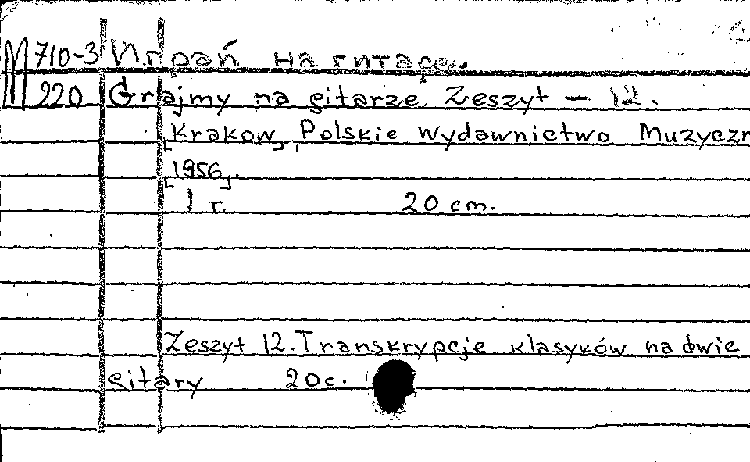 М 710-3 Играй на гитаре.
220 Grajmy na gitarze Zeszyt – 12.
[Krakow], Polskie Wydawnictwo Muzyczn
[1956].
1 г. 20 cm.
Zeszyt 12. Transkrypcje klasyków na dwie
gitary 20c.